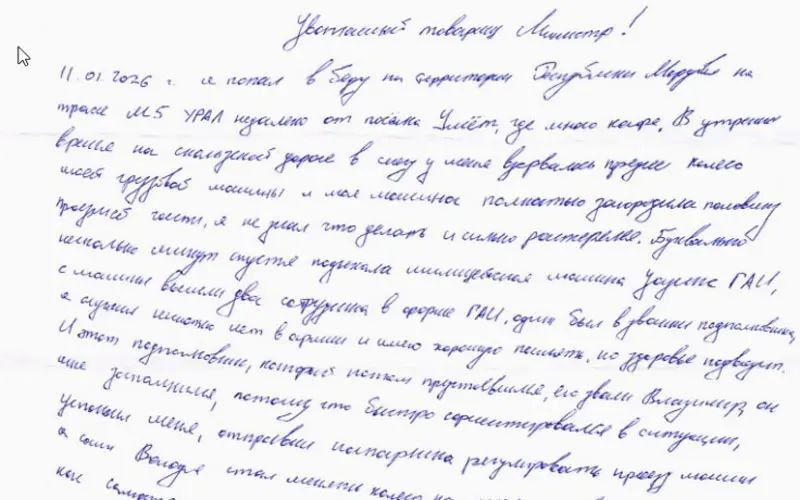 Уважаемый товарищ Министр!
11.01.2026 г. я попал в беду на территории Республики Мордовия на
трасе М5 УРАЛ недалеко от посёлка Умёт, где много кафе. В утренние
время на скользской дороге в снегу у меня взорвалось преднее колесо
моей грузовой машины и моя машина полностью загородила половину
проезжей части, я не знал что делать и сильно растерялся. Буквально
несколько минут спустя подъехала милицейская машина Уазик ГАИ,
с машины вышли два сотрудника в форме ГАИ, один был в звании подполковника,
я служил несколько лет в армии и имею хорошую память, но здоровье подводит.
И этот подполковник, который потом представился, его звали Владимир, он
мне запомнился, потому что быстро сориентировался в ситуации,
успокоил меня, отправил напарника регулировать проезд машин
а сам Володя стал менять колесо на
как